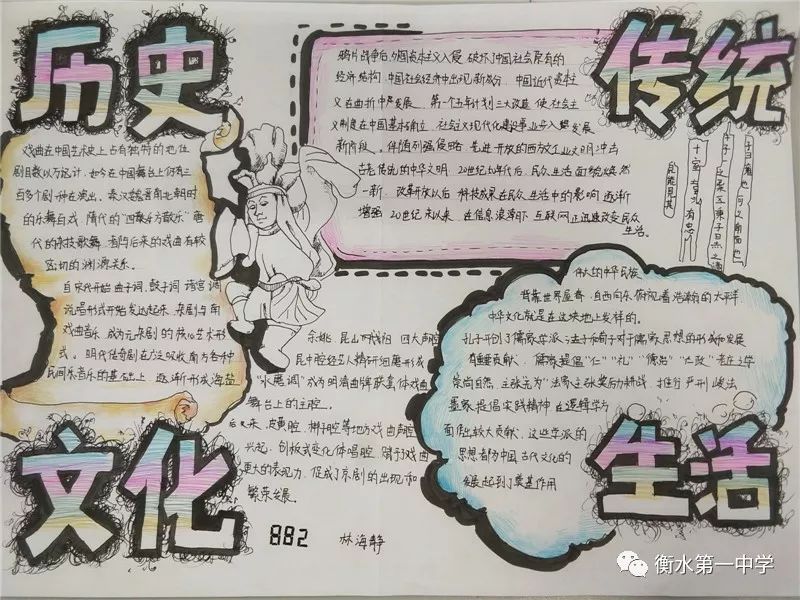 历史
传统
戏曲在中国艺术史上占有独特的地位
剧目数以万记计，如今在中国舞台上仍有三
百多个剧种在演出，秦汉魏晋南北朝时
的乐舞百戏，隋代的“四裔乐
代的杂技歌舞，都同后来的戏曲有较
密切的渊源关系。
自宋代开始曲子词、鼓子词、诸宫调
说唱形式开始发达起来，杂剧与南
戏曲音乐，成为元杂剧的核心艺术形
式。明代传奇剧在广泛吸收南方各种
民间乐音乐的基础上，逐渐形成海盐
余姚、昆山
四大声腔
昆中腔经艺人精研细磨形成
“水磨调”成为明清曲牌联套体戏曲
舞台上的主腔。
后又来，皮黄腔、梆子腔等地方戏曲声腔
兴起，创板式变化体唱腔，赋予戏曲
更大的表现力，促成了京剧的出现和
繁荣发展。
鸦片战争后，外国资本主义入侵，破坏了中国社会原有的
经济结构，中国社会经济中出现新成分，中国近代资本主
义在曲折中严发展。第一个五年计划三大改造，使社会主
义制度在中国基本确立，社会主义现代化建设事业步入
发展
新阶段。伴随列强侵略，先进开放的西方工业文明冲击
古老传统的中华文明，20世纪20年代后，民众生活面貌焕然
一新。改革开放以后，科技成果在民众生活中的影响逐渐
增强，20世纪末以来，在信息浪潮下，互联网正迅速改变民众
生活。
伟大的中华民族，
背靠世界屋脊，自西向东俯视着浩瀚的太平洋
中华文化就是在这块地上发祥的。
孔子开创了儒家学派，孟子荀子对于儒家思想的形成和发展
有重要贡献，儒家提倡“仁”“礼”“德治”“仁政”老庄之学
崇尚自然，主张无为，法家主张奖励耕战，推行严刑峻法
墨家提倡实践精神，在逻辑学方
面作出较大贡献，这些学派的
思想都为中国古代文化的
发展起到了奠基作用
文化
生活
882 林海静
衡水第一中学